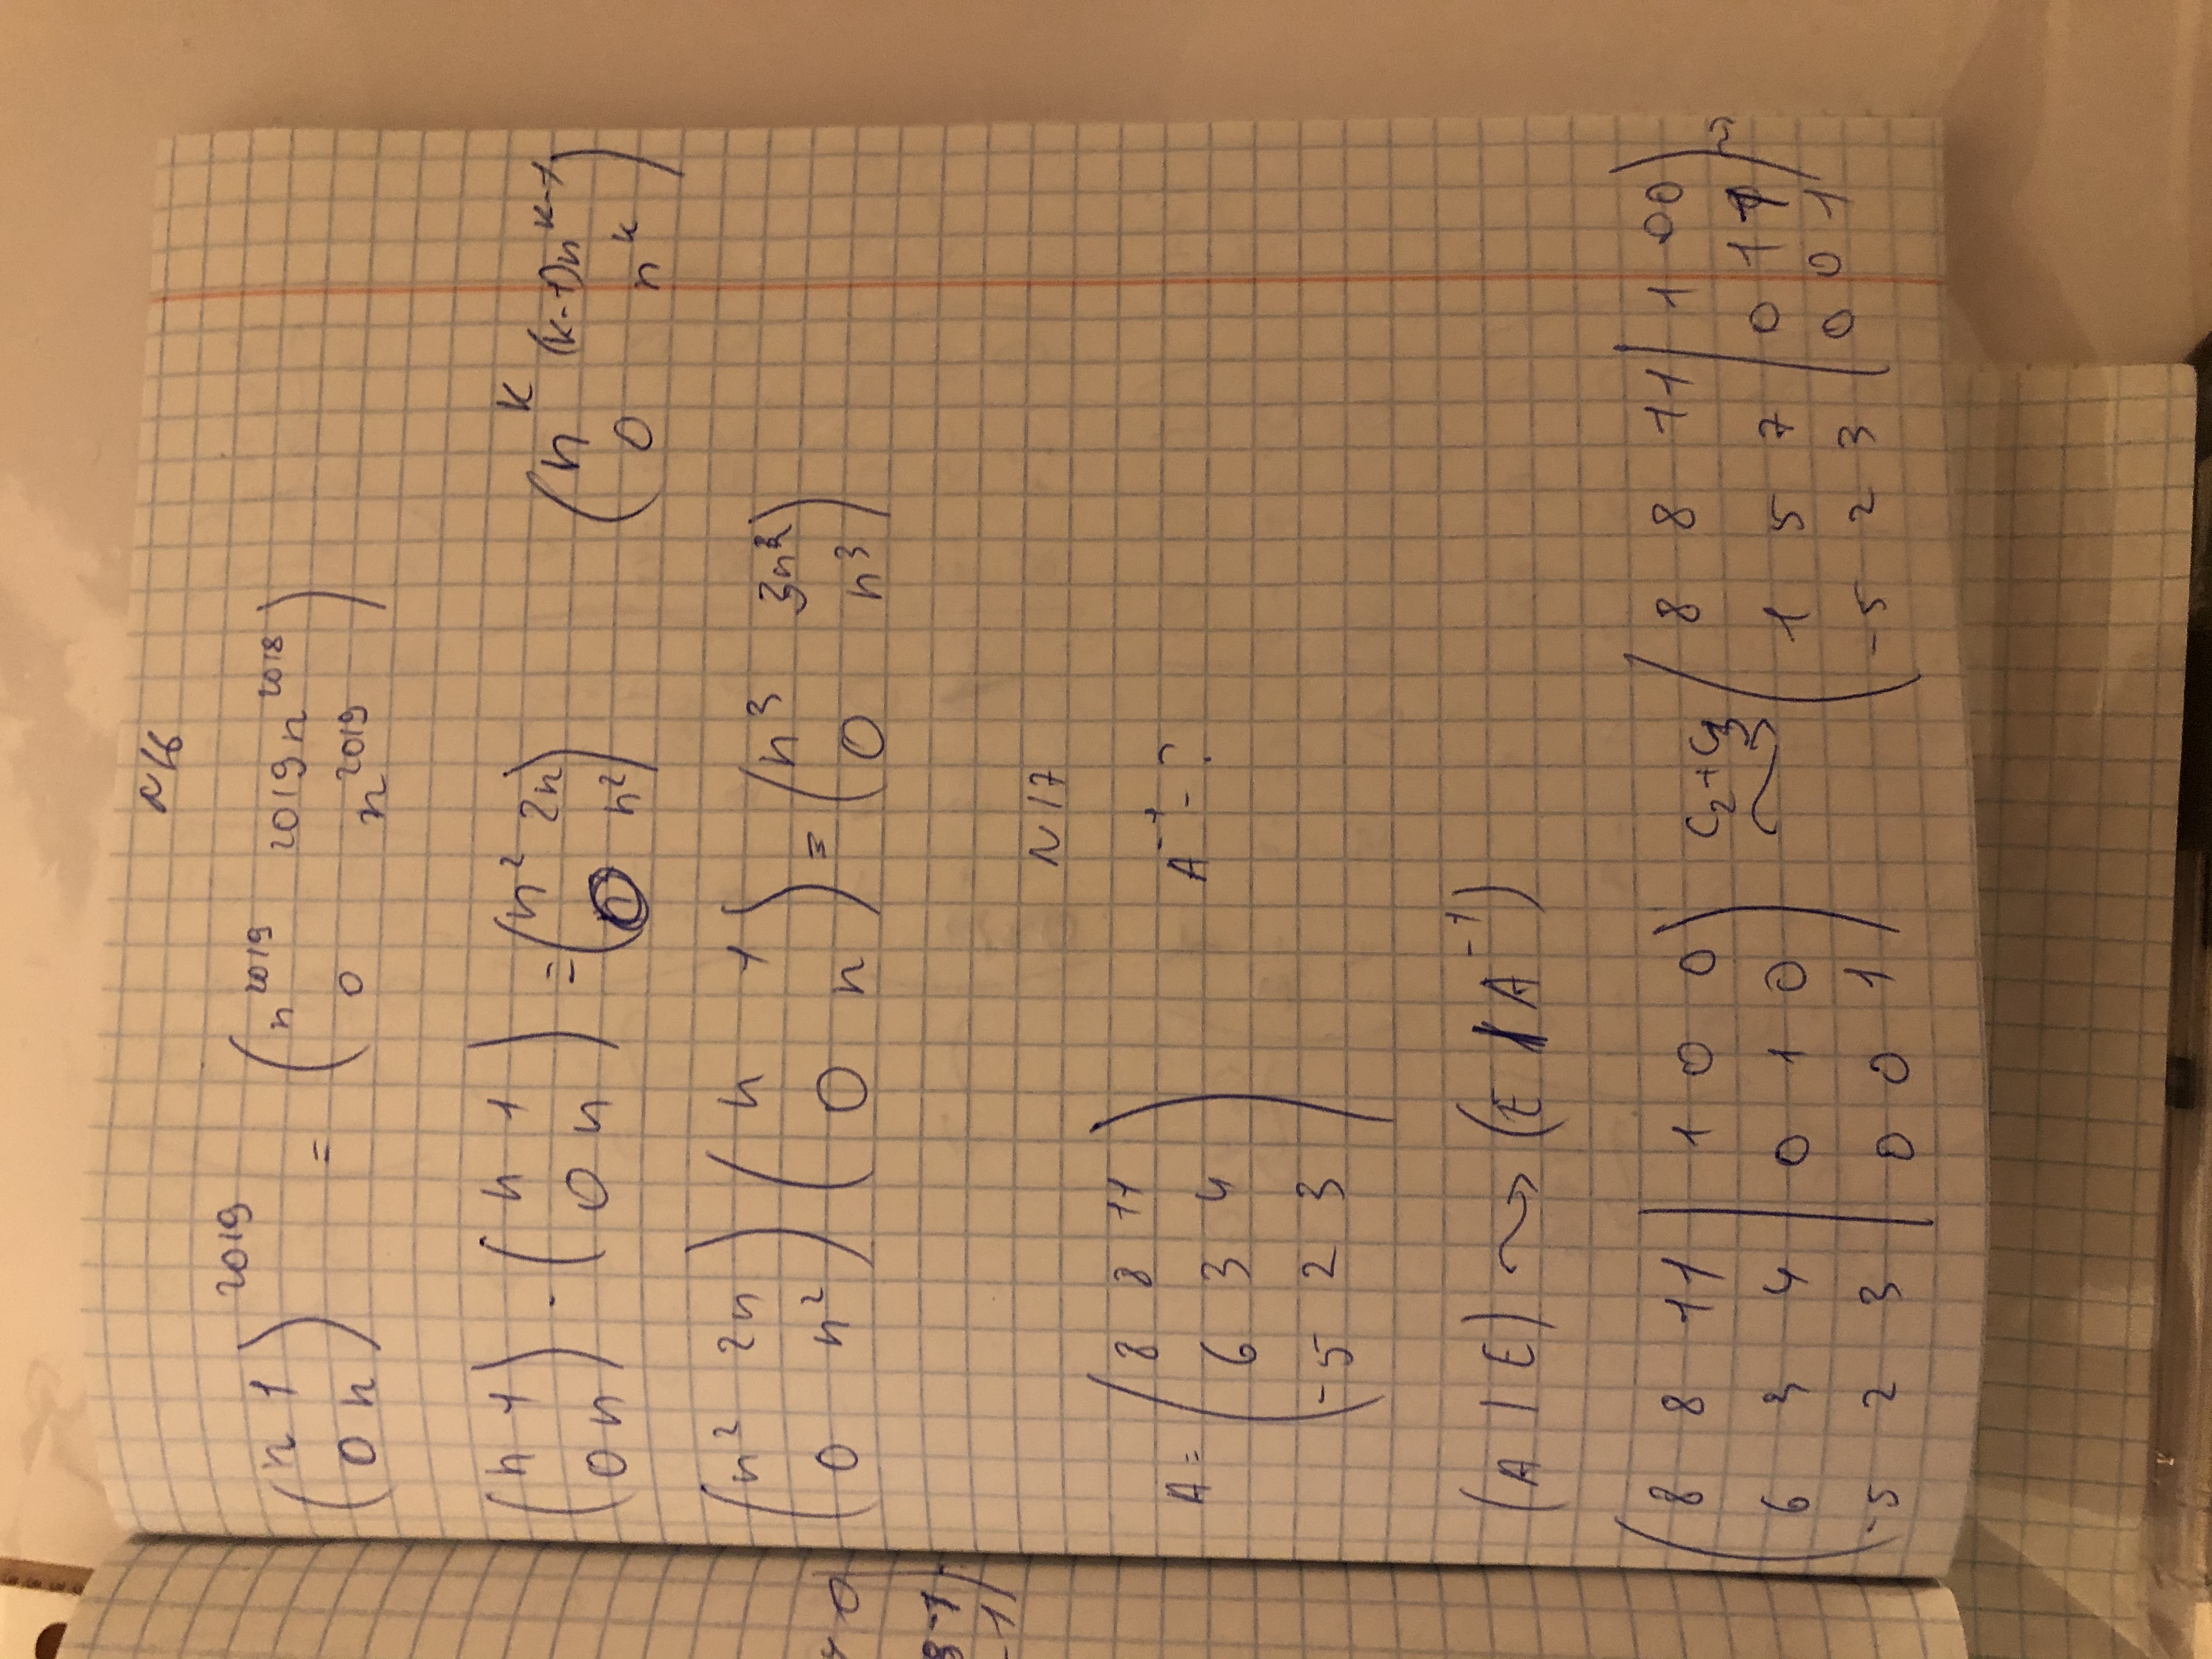 N 16
( n 1 ; 0 n )^2019 = ( n^2019 2019n^2018 ; 0 n^2019 )
( n 1 ; 0 n ) · ( n 1 ; 0 n ) = ( n² 2n ; 0 n² ) ( n^k (k-1)n^k-1 ; 0 n^k )
( n² 2n ; 0 n² ) ( n 1 ; 0 n ) = ( n³ 3n² ; 0 n³ )
N 17
A = ( 8 8 11 ; 6 3 4 ; -5 2 3 ) A^-1 - ?
(A | E) ⇝ (E | A^-1)
( 8 8 11 | 1 0 0 ; 6 3 4 | 0 1 0 ; -5 2 3 | 0 0 1 ) C₂+C₃ ⇝ ( 8 8 11 | 1 0 0 ; 1 5 7 | 0 1 1 ; -5 2 3 | 0 0 1 ) ⇝